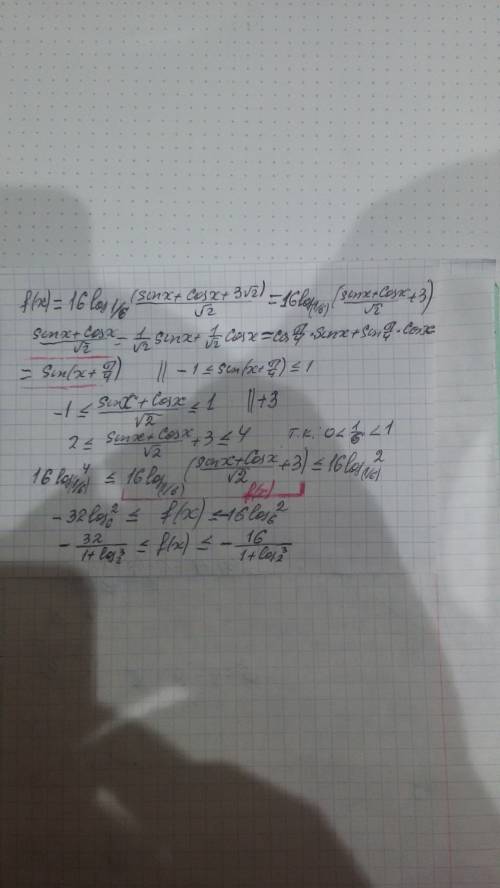 f(x) = 16 log_{1/6} ((sinx + cosx + 3√2)/√2) = 16 log_{(1/6)} ((sinx + cosx)/√2 + 3)
(sinx + cosx)/√2 = 1/√2 sinx + 1/√2 cosx = cos π/4 · sinx + sin π/4 · cosx
= sin(x + π/4) || -1 ≤ sin(x + π/4) ≤ 1
-1 ≤ (sinx + cosx)/√2 ≤ 1 || +3
2 ≤ (sinx + cosx)/√2 + 3 ≤ 4 т.к.: 0 < 1/6 < 1
16 log_{(1/6)} 4 ≤ 16 log_{(1/6)} ((sinx + cosx)/√2 + 3) ≤ 16 log_{(1/6)} 2
f(x)
-32 log_6 2 ≤ f(x) ≤ -16 log_6 2
-32/(1 + log_2 3) ≤ f(x) ≤ -16/(1 + log_2 3)